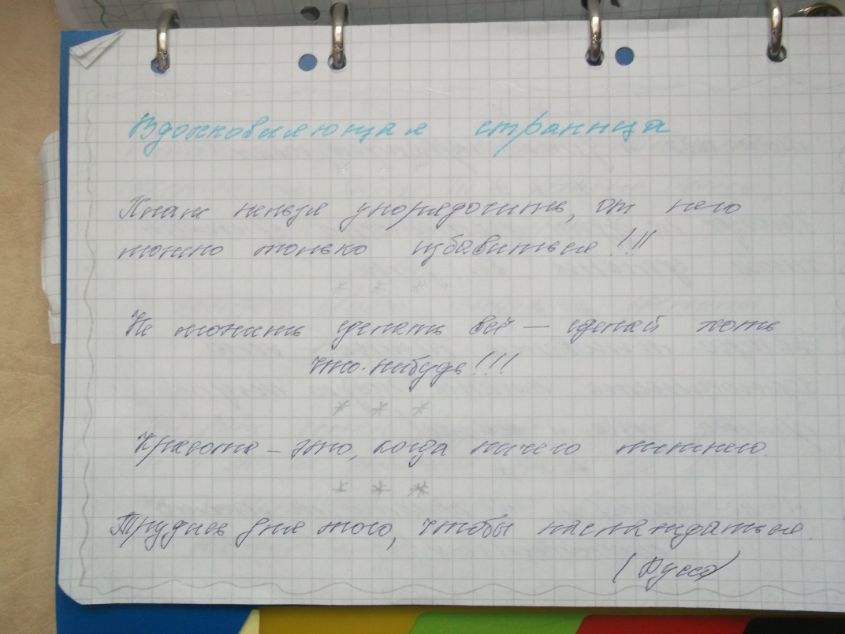 Вдохновляющая страница
Хлам нельзя упорядочить, от него
можно только избавиться!!!
* * *
Не можешь сделать всё — сделай хоть
что-нибудь!!!
* * *
Красота – это, когда ничего лишнего.
* * *
Трудись для того, чтобы наслаждаться.
(Руссо)